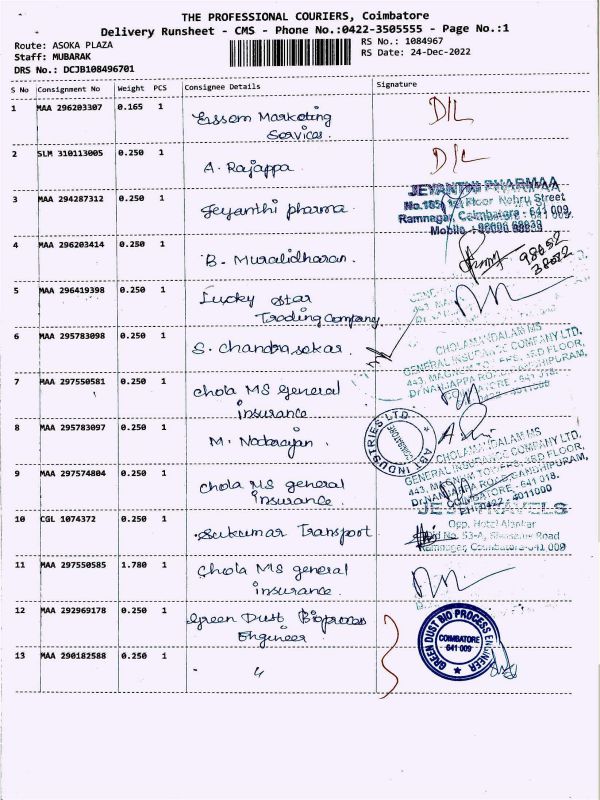 THE PROFESSIONAL COURIERS, Coimbatore
Delivery Runsheet - CMS - Phone No.:0422-3505555 - Page No.:1
Route: ASOKA PLAZA
RS No.: 1084967
Staff: MUBARAK
RS Date: 24-Dec-2022
DRS No.: DCJB108496701
S No Consignment No Weight PCS Consignee Details Signature
1 MAA 296203307 0.165 1 Essem Marketing D/L
Services.
2 SLM 310113005 0.250 1 A. Rajappa D/L
JEYANTHI PHARMAA
3 MAA 294287312 0.250 1 Jeyanthi pharma No.185, 1st Floor Nehru Street
Ramnagar, Coimbatore - 641 009.
Mobile
4 MAA 296203414 0.250 1 B. Muralidharan. 98652
38022
5 MAA 296419398 0.250 1 Lucky Star
Trading Company
6 MAA 295783098 0.250 1 S. Chandrasekar.
CHOLAMANDALAM MS
GENERAL INSURANCE COMPANY LTD.
7 MAA 297550581 0.250 1 Chola MS General
Insurance
8 MAA 295783097 0.250 1 M. Natarajan. ABT INDUSTRIES LTD. COIMBATORE
CHOLAMANDALAM MS
GENERAL INSURANCE COMPANY LTD.
9 MAA 297574804 0.250 1 Chola MS general
Insurance.
COIMBATORE - 641 018.
4011000
10 CGL 1074372 0.250 1 Sukumar Transport
TRAVELS
Opp. Hotel Alankar
Ramnagar, Coimbatore-641 009
11 MAA 297550585 1.780 1 Chola MS general
insurance.
12 MAA 292969178 0.250 1 Green Dust Bioprocess
Engineer
GREEN DUST BIO PROCESS ENGINEER
COIMBATORE
641 009
13 MAA 290182588 0.250 1 - 〃